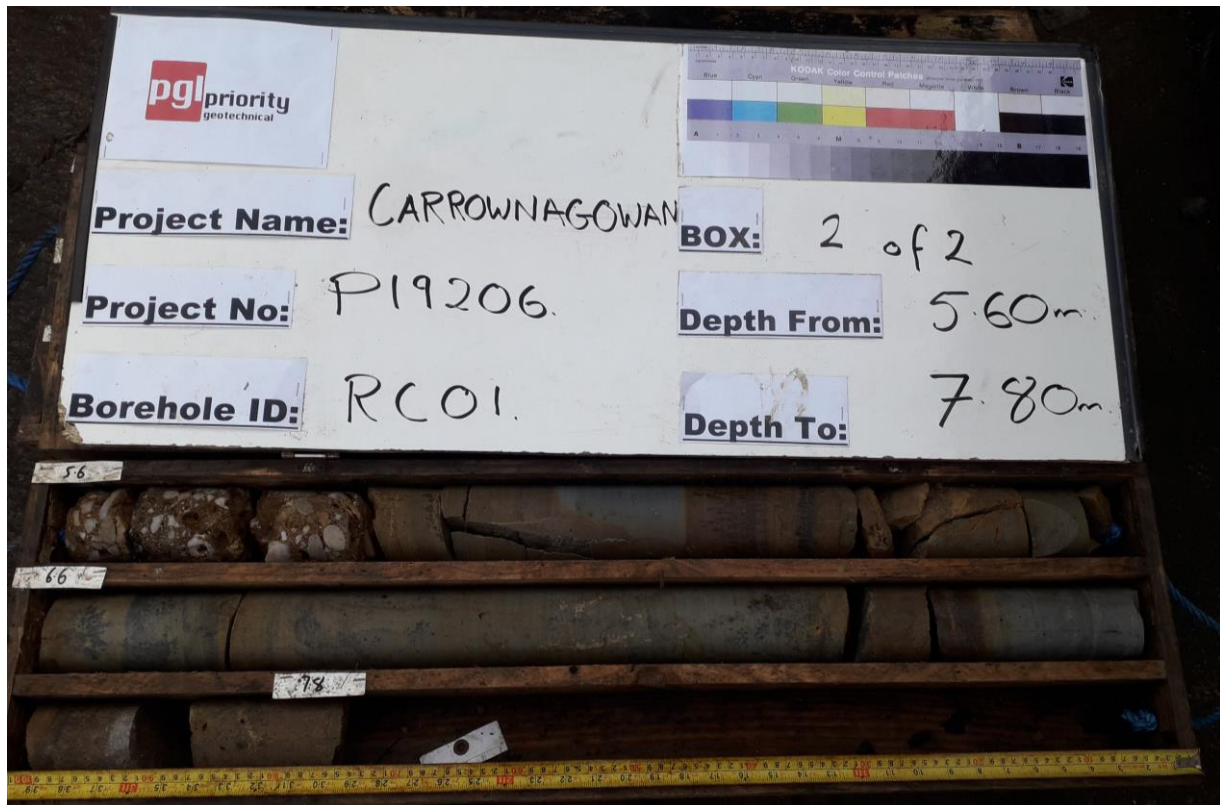 pgl priority
geotechnical
KODAK Color Control Patches
Blue Cyan Green Yellow Red Magenta White Brown Black
Project Name: CARROWNAGOWAN
BOX: 2 of 2
Project No: P19206.
Depth From: 5.60m.
Borehole ID: RC01.
Depth To: 7.80m.
5.6
6.6
7.8